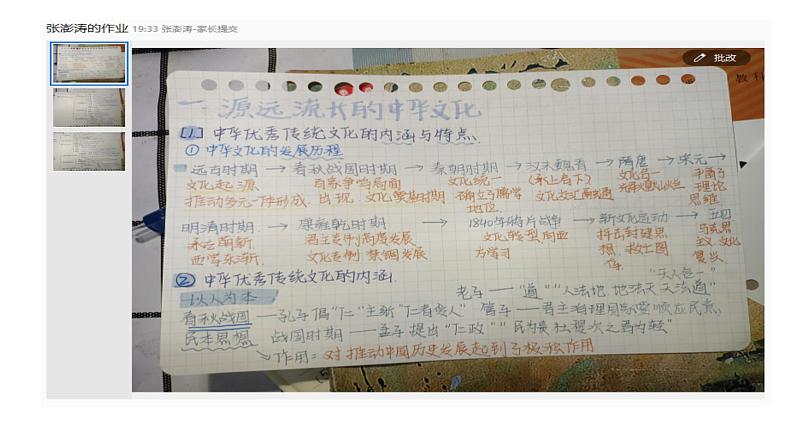 张澎涛的作业 19:33 张澎涛-家长提交
批改
教科
一 源远流长的中华文化
[1] 中华优秀传统文化的内涵与特点
① 中华文化的发展历程
远古时期 → 春秋战国时期 → 秦朝时期 → 汉末魏晋 → 隋唐 → 宋元 →
文化起源 百家争鸣局面 文化统一 (承上启下) 文化
推动多元一体形成 出现 文化 时期 确立了儒学 文化交汇 理论
地位 思维
明清时期 → 康雍乾时期 → 1840年鸦片战争 → 新文化运动 → 五四
君主专制高度发展 文化转型向西 抨击封建思 马克思
西学东渐 文化专制 禁锢发展 方学习 想 主义 文化
复兴
② 中华优秀传统文化的内涵
"天人合一"
以人为本 老子——"道" "人法地 地法天 天法道"
春秋战国——孔子倡"仁" "仁者爱人" 管子——君主治理国家要顺应民意
民本思想 战国时期——孟子提出"仁政" "民为贵 社稷次之 君为轻"
作用：对推动中国历史发展起到了积极作用